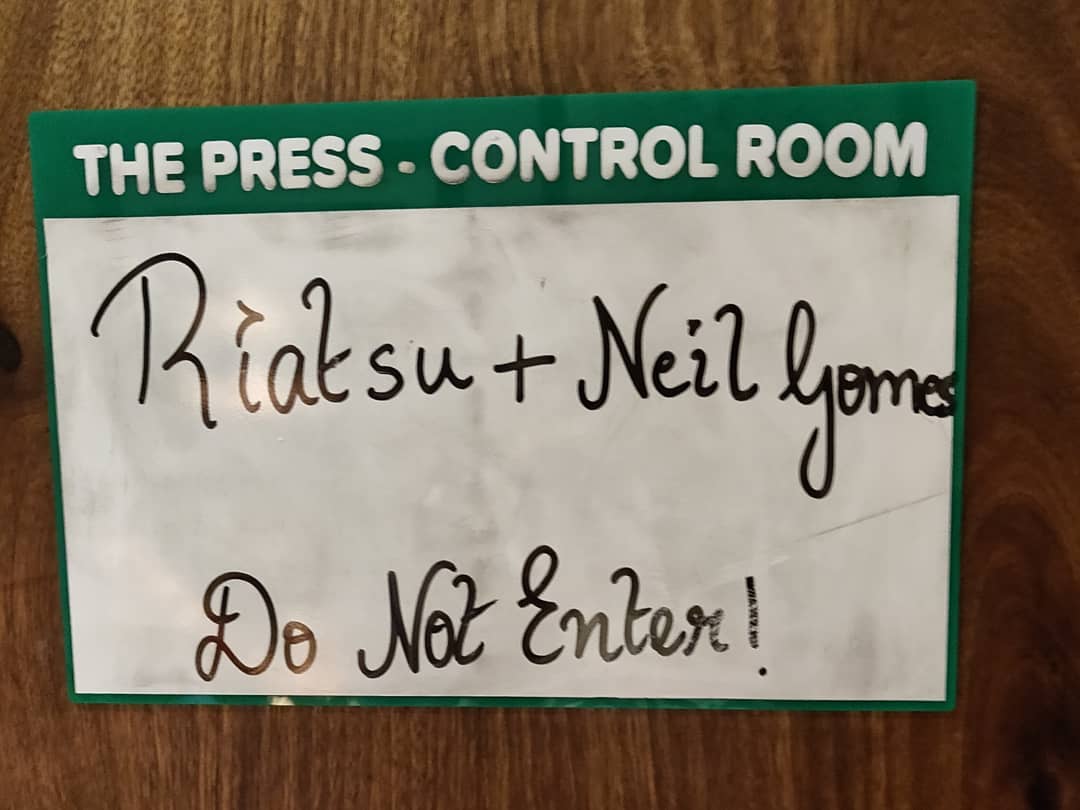 THE PRESS - CONTROL ROOM
Riatsu + Neil Gomes
Do Not Enter!